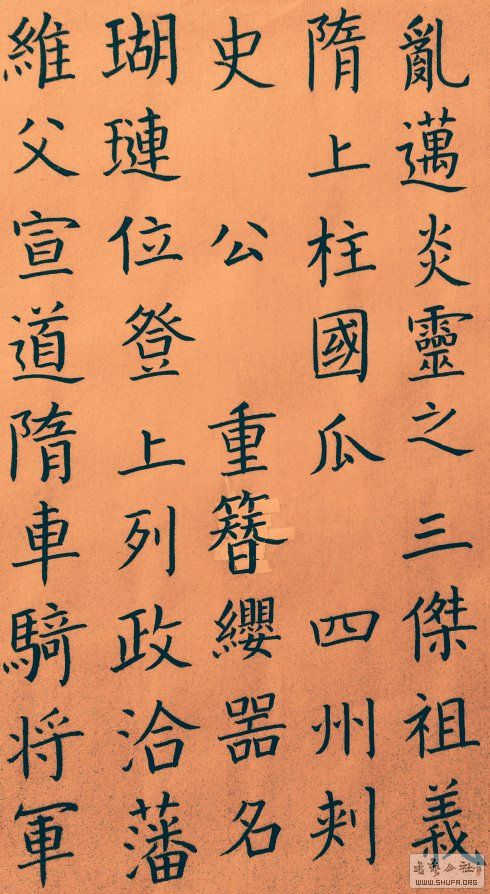 亂邁炎靈之 三傑祖義
隋上柱國瓜 四州刾
史 公 重簪纓器名
瑚璉位登上列政洽藩
維父宣道隋車騎将軍
WWW.SHUFA.ORG